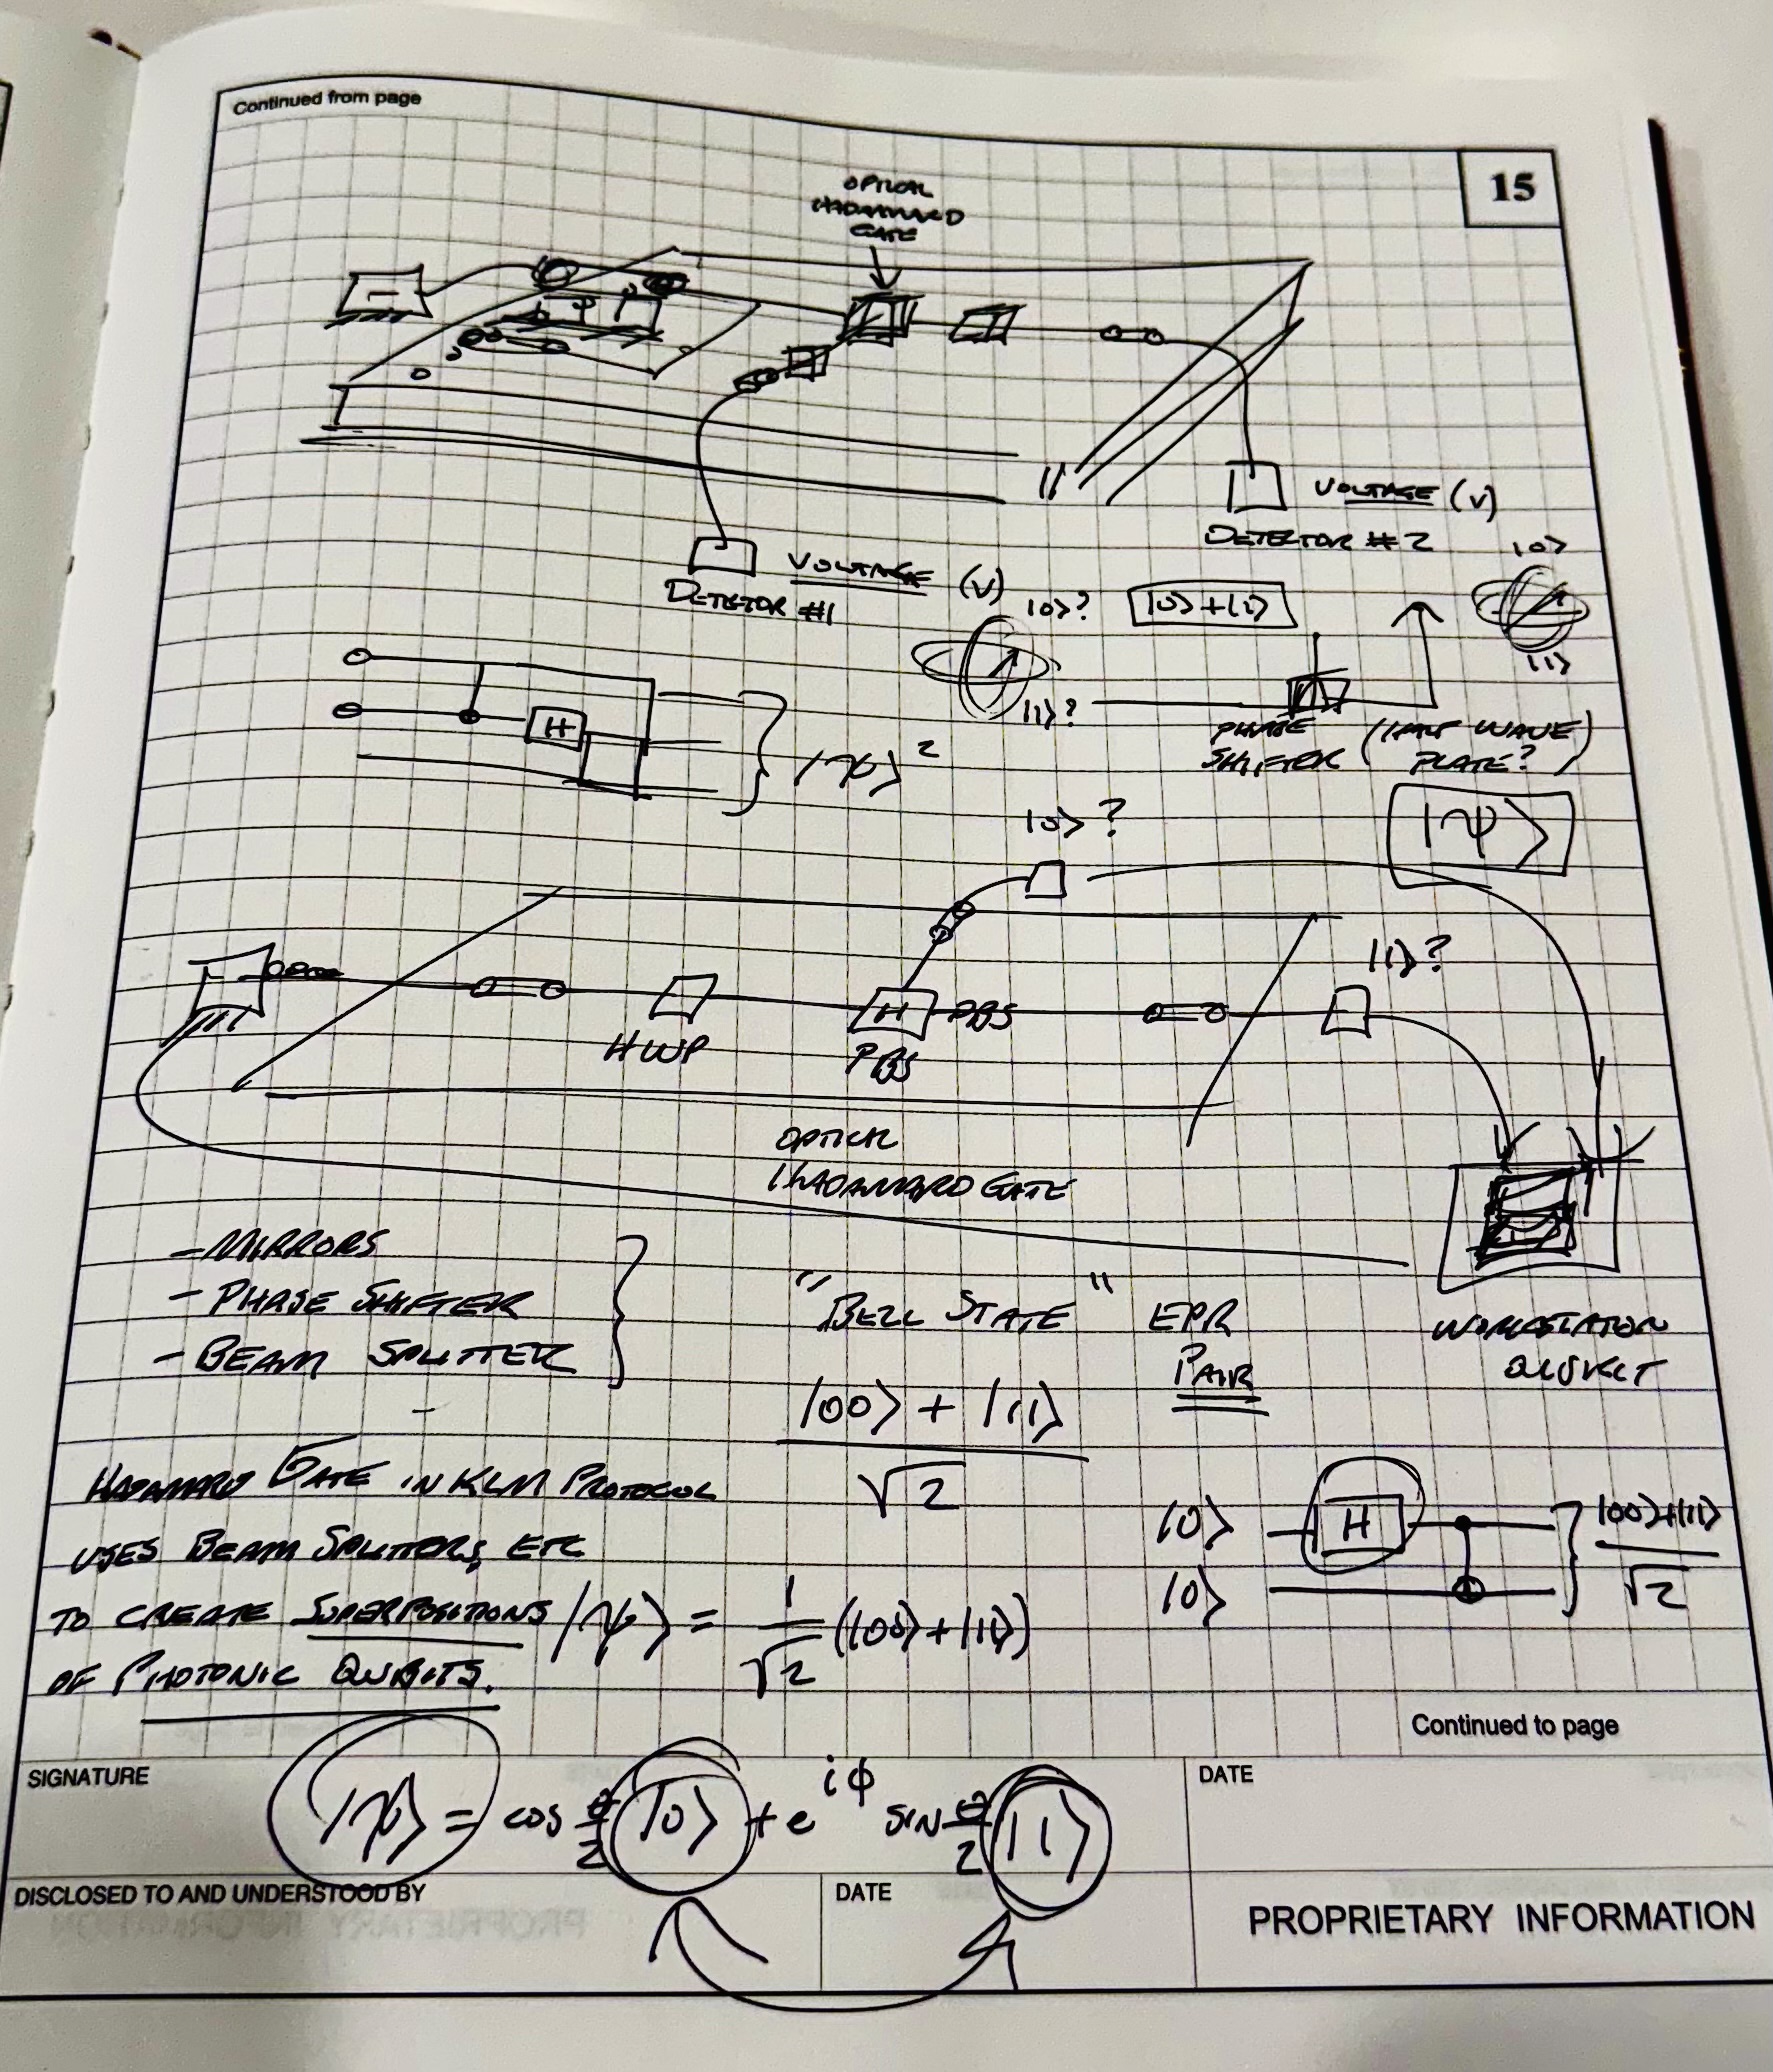 Continued from page
15
OPTICAL
HADAMARD
GATE
VOLTAGE (V)
DETECTOR #2
VOLTAGE (V)
DETECTOR #1
|0>?
|1>?
|0> + |1>
|0>
|1>
PHASE
SHIFTER
(HALF WAVE
PLATE?)
H
|ψ>²
|ψ>
|0>?
|1>?
HWP
H
PBS
PBS
OPTICAL
HADAMARD GATE
- MIRRORS
- PHASE SHIFTER
- BEAM SPLITTER
-
"BELL STATE"
EPR
PAIR
|00> + |11>
√2
WORKSTATION
QUSKIT
HADAMARD GATE IN KLM PROTOCOL
USES BEAM SPLITTERS, ETC
TO CREATE SUPERPOSITIONS
OF PHOTONIC QUBITS.
|ψ> = 1/√2 (|00> + |11>)
|0>
H
|0>
|00>+|11>
√2
Continued to page
SIGNATURE
|ψ> = cos θ/2 |0> + e^iφ sin θ/2 |1>
DATE
DISCLOSED TO AND UNDERSTOOD BY
DATE
PROPRIETARY INFORMATION